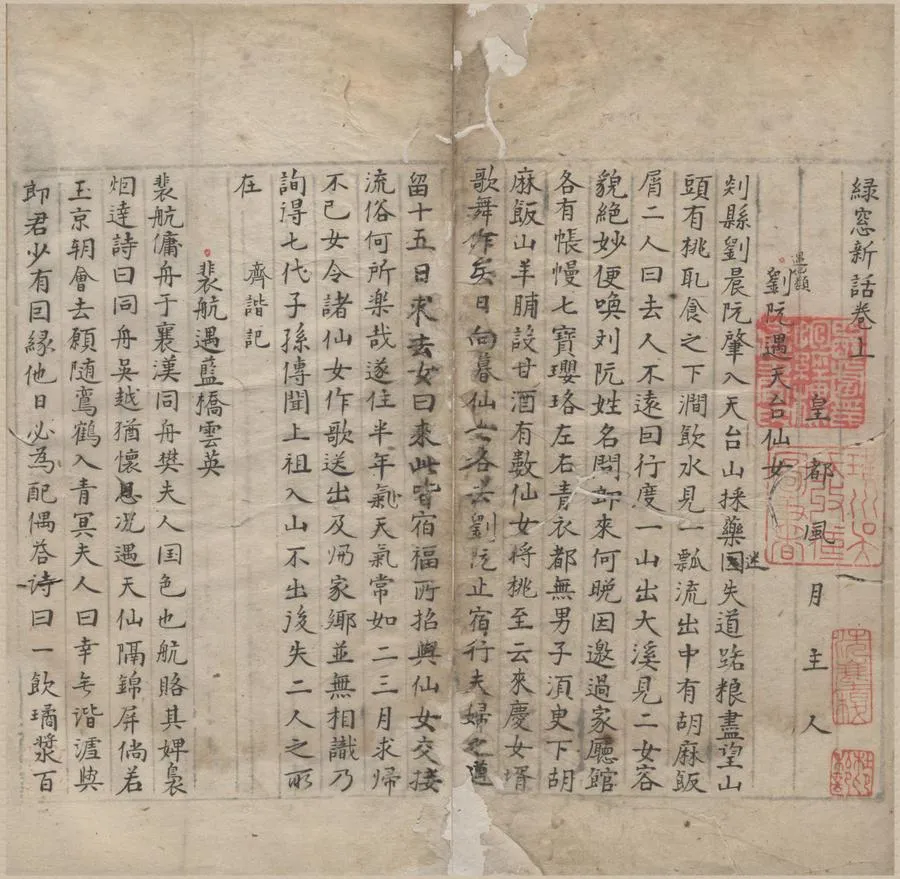 綠窓新話卷上
皇都風月主人
劉阮遇天台仙女
剡縣劉晨阮肇入天台山採藥迷失道路粮盡望山
頭有桃取食之下澗飲水見一瓢流出中有胡麻飯
屑二人曰去人不遠囙行度一山出大溪見二女容
貌絕妙便喚刘阮姓名問郎來何晚因邀過家廳館
各有帳幔七寶瓔珞左右青衣都無男子湏臾下胡
麻飯山羊脯設甘酒有數仙女將桃至云來慶女壻
歌舞作矣日向暮仙女各去劉阮止宿行夫婦之道
留十五日求去女曰來此皆宿福所招與仙女交接
流俗何所楽哉遂住半年天氣常如二三月求歸
不已女令諸仙女作歌送出及帰家鄉並無相識乃
詢得七代子孫傳聞上祖入山不出後失二人之所
在　齊諧記
裴航遇藍橋雲英
裴航傭舟于襄漢同舟樊夫人国色也航賂其婢裊
烟達詩曰同舟吳越猶懷思况遇天仙隔錦屏倘若
玉京朝會去願随鸞鶴入青冥夫人曰幸無諧謔與
郎君少有囙縁他日必為配偶荅诗曰一飲璚漿百